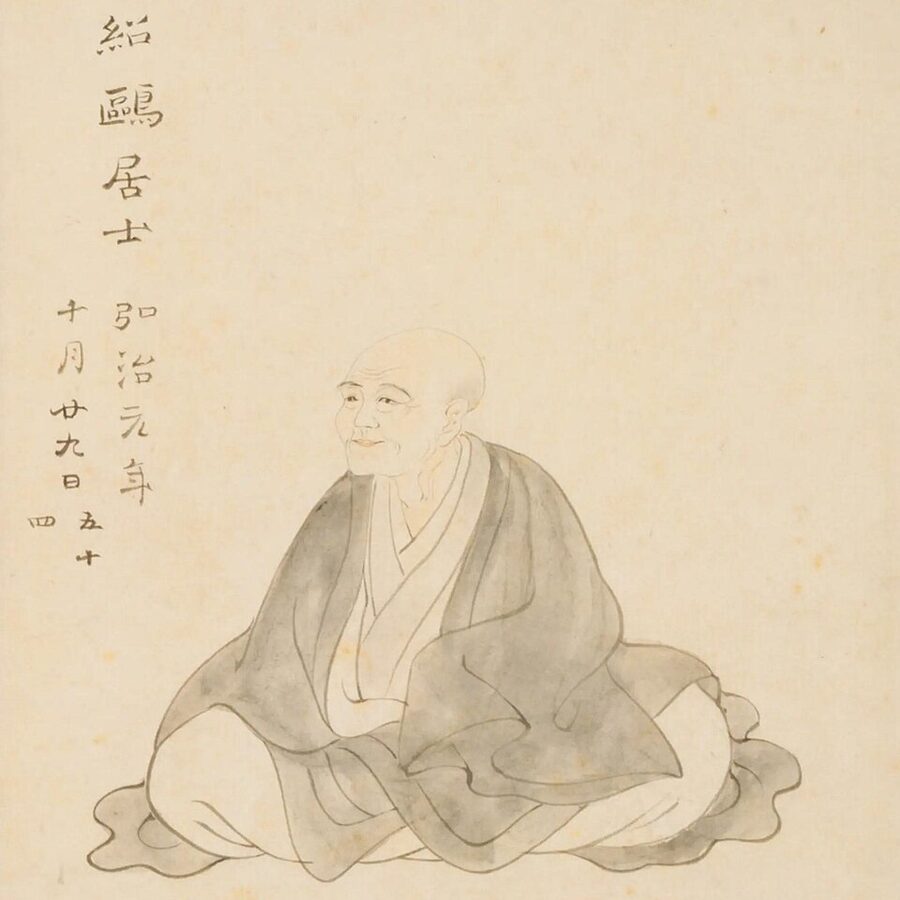 紹鷗居士
弘治元年
十月廿九日
五十
四